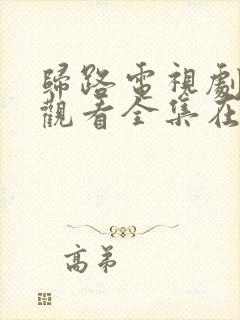 歸路電視劇
觀看全集在
高弟